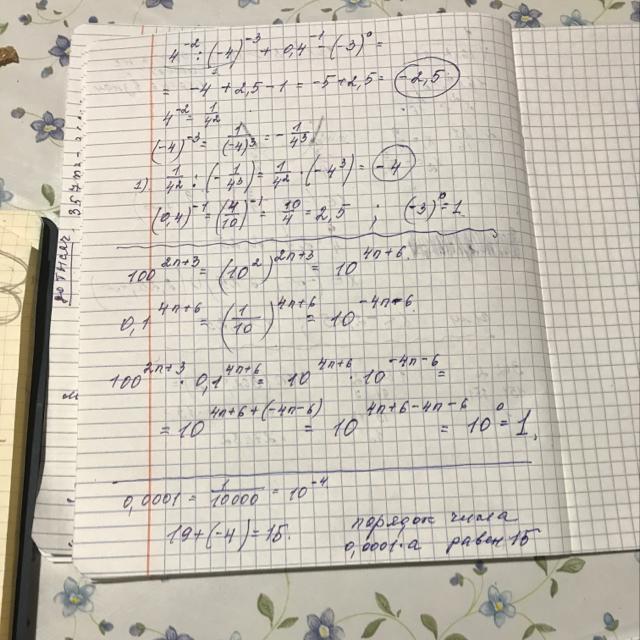 4⁻² : (-4)⁻³ + 0,4⁻¹ - (-3)⁰ =
= -4 + 2,5 - 1 = -5 + 2,5 = -2,5
4⁻² = 1/4²
(-4)⁻³ = 1/(-4)³ = - 1/4³
1) 1/4² : (- 1/4³) = 1/4² · (-4³) = -4
(0,4)⁻¹ = (4/10)⁻¹ = 10/4 = 2,5 ; (-3)⁰ = 1
100²ⁿ⁺³ = (10²)²ⁿ⁺³ = 10⁴ⁿ⁺⁶
0,1⁴ⁿ⁺⁶ = (1/10)⁴ⁿ⁺⁶ = 10⁻⁴ⁿ⁻⁶
100²ⁿ⁺³ · 0,1⁴ⁿ⁺⁶ = 10⁴ⁿ⁺⁶ · 10⁻⁴ⁿ⁻⁶ =
= 10⁴ⁿ⁺⁶⁺⁽⁻⁴ⁿ⁻⁶⁾ = 10⁴ⁿ⁺⁶⁻⁴ⁿ⁻⁶ = 10⁰ = 1.
0,0001 = 1/10000 = 10⁻⁴
19 + (-4) = 15. порядок числа
0,0001·a равен 15